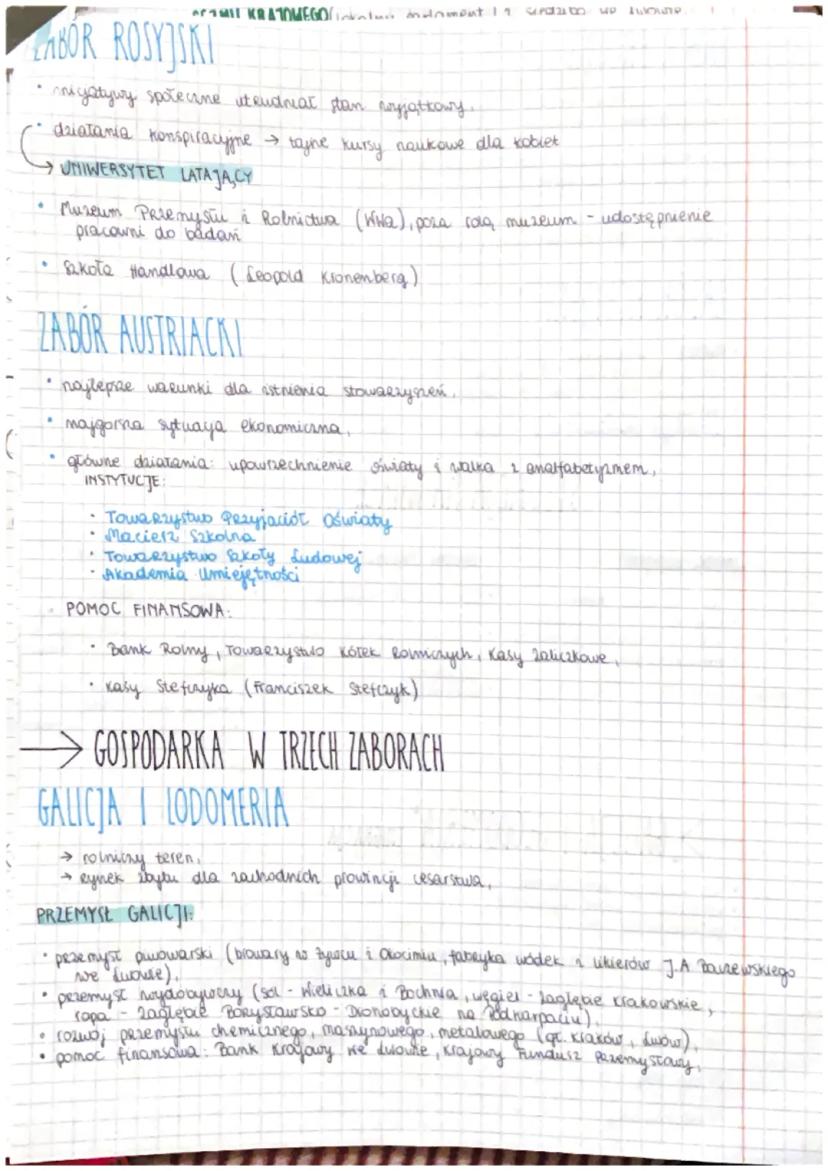 KRAJOWEGO (lokalny
ZABÓR ROSYJSKI
• inicjatywy społeczne utrudniał stan wyjątkowy.
• działania konspiracyjne → tajne kursy naukowe dla kobiet
→ UNIWERSYTET LATAJĄCY
• Muzeum Przemysłu i Rolnictwa (WWa), poza rolą muzeum - udostępnienie
pracowni do badań
• Szkoła Handlowa (Leopold Kronenberg)
ZABÓR AUSTRIACKI
• najlepsze warunki dla istnienia stowarzyszeń,
• najgorsza sytuacja ekonomiczna,
• główne działania: upowszechnienie oświaty i walka z analfabetyzmem,
INSTYTUCJE:
• Towarzystwo Przyjaciół Oświaty
• Macierz Szkolna
• Towarzystwo Szkoły Ludowej
• Akademia Umiejętności
POMOC FINANSOWA:
• Bank Rolny, Towarzystwo Kółek Rolniczych, Kasy Zaliczkowe,
• Kasy Stefczyka (Franciszek Stefczyk)
→ GOSPODARKA W TRZECH ZABORACH
GALICJA I LODOMERIA
→ rolniczy teren,
→ rynek zbytu dla zachodnich prowincji cesarstwa,
PRZEMYSŁ GALICJI:
• przemysł piwowarski (browary w Żywcu i Okocimiu, fabryka wódek i likierów J.A Baczewskiego
we Lwowie),
• przemysł wydobywczy (sól - Wieliczka i Bochnia, węgiel - Zagłębie Krakowskie,
ropa - Zagłębie Borysławsko - Drohobyckie na Podkarpaciu),
• rozwój przemysłu chemicznego, maszynowego, metalowego (gł. Kraków, Lwów),
• pomoc finansowa: Bank Krajowy we Lwowie, Krajowy Fundusz Przemysłowy,